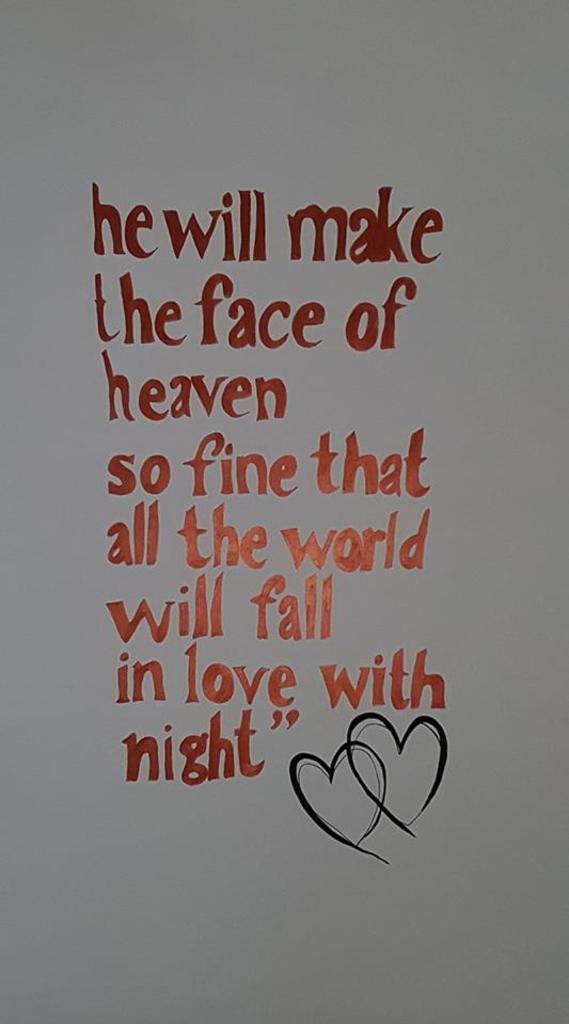 he will make
the face of
heaven
so fine that
all the world
will fall
in love with
night”